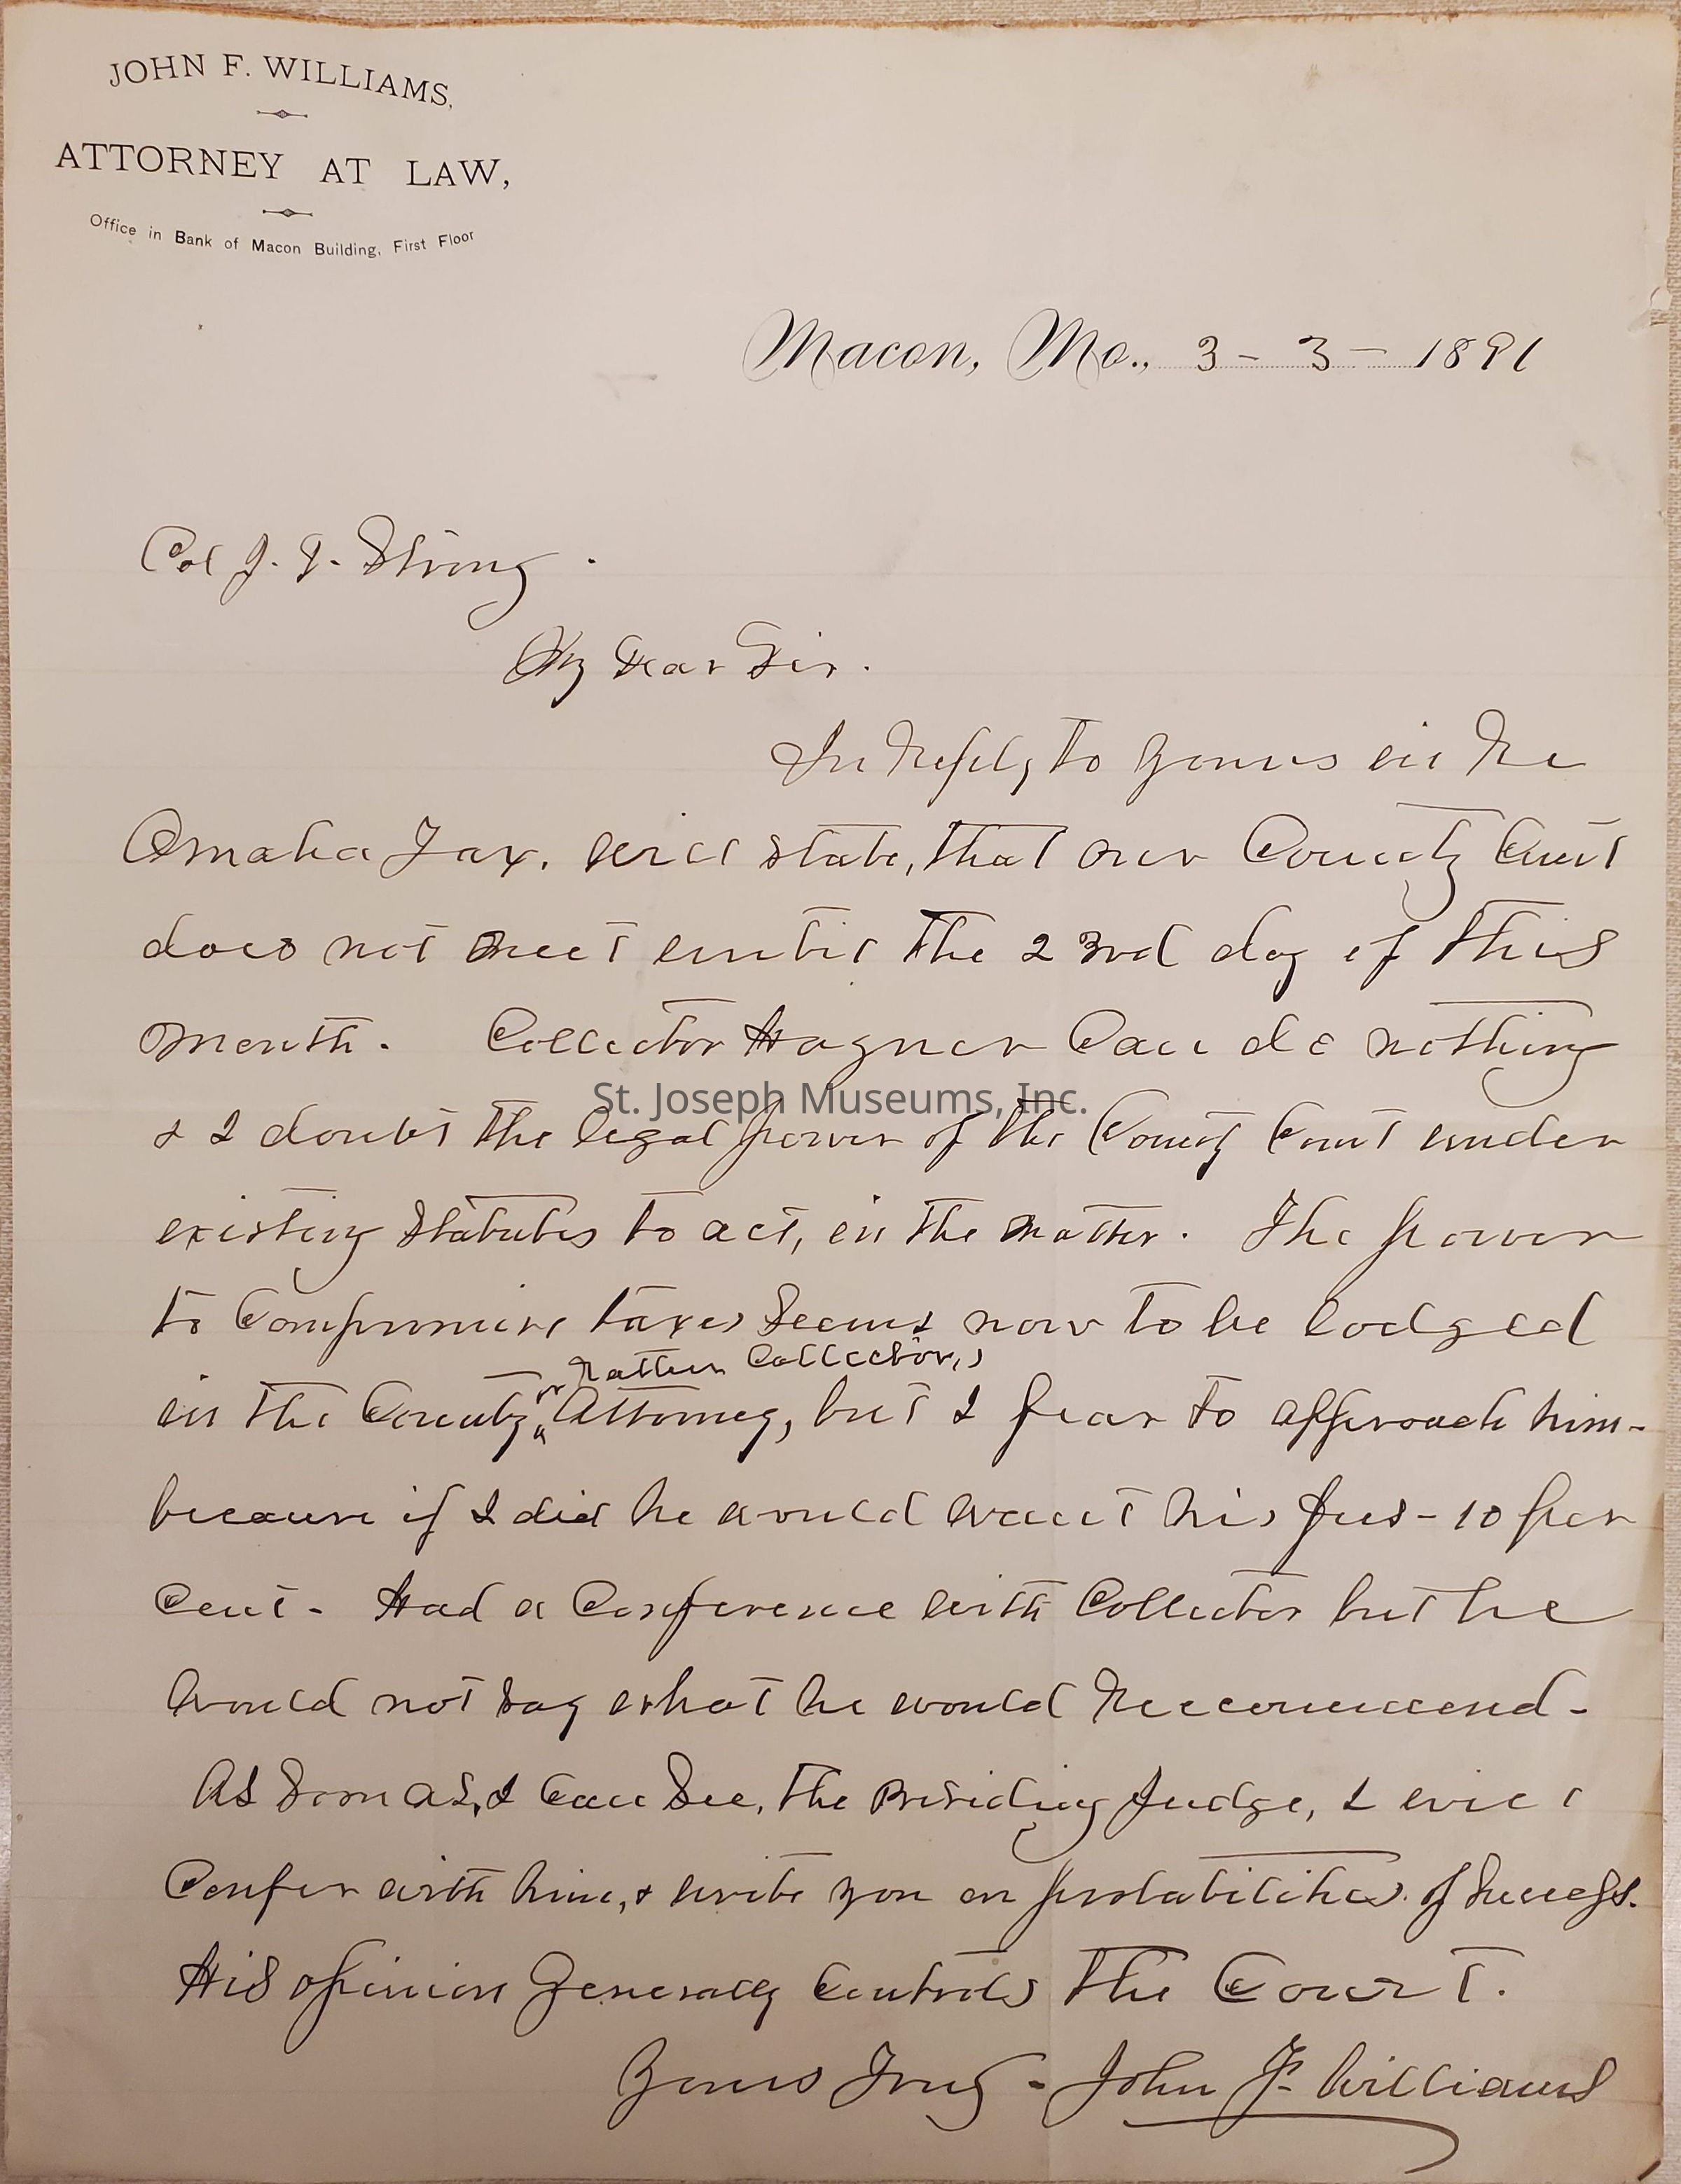 JOHN F. WILLIAMS,
ATTORNEY AT LAW,
Office in Bank of Macon Building, First Floor
Macon, Mo., 3 - 3 - 1891
Col J. T. Strong.
My Dear Sir.
In Reply to yours in Re
Omaha Tax. will state, that our County Court
does not meet until the 23rd day of this
month. Collector Hagner Can do nothing
St. Joseph Museums, Inc.
& I doubt the legal power of the County Court under
existing Statutes to act, in the matter. The power
to Compromise taxes Seems now to be lodged
or Rather Collector,s
in the County Attorney, but I fear to approach him-
because if I did he would want his fees - 10 per
Cent - Had a Conference with Collector but he
Would not say what he would Reccommend -
As Soon as, I Can See, the Presiding Judge, I will
Confer with him, & write you on probabilities. of Success.
His opinion Generally Controls the Court.
Yours Truly - John F. Williams